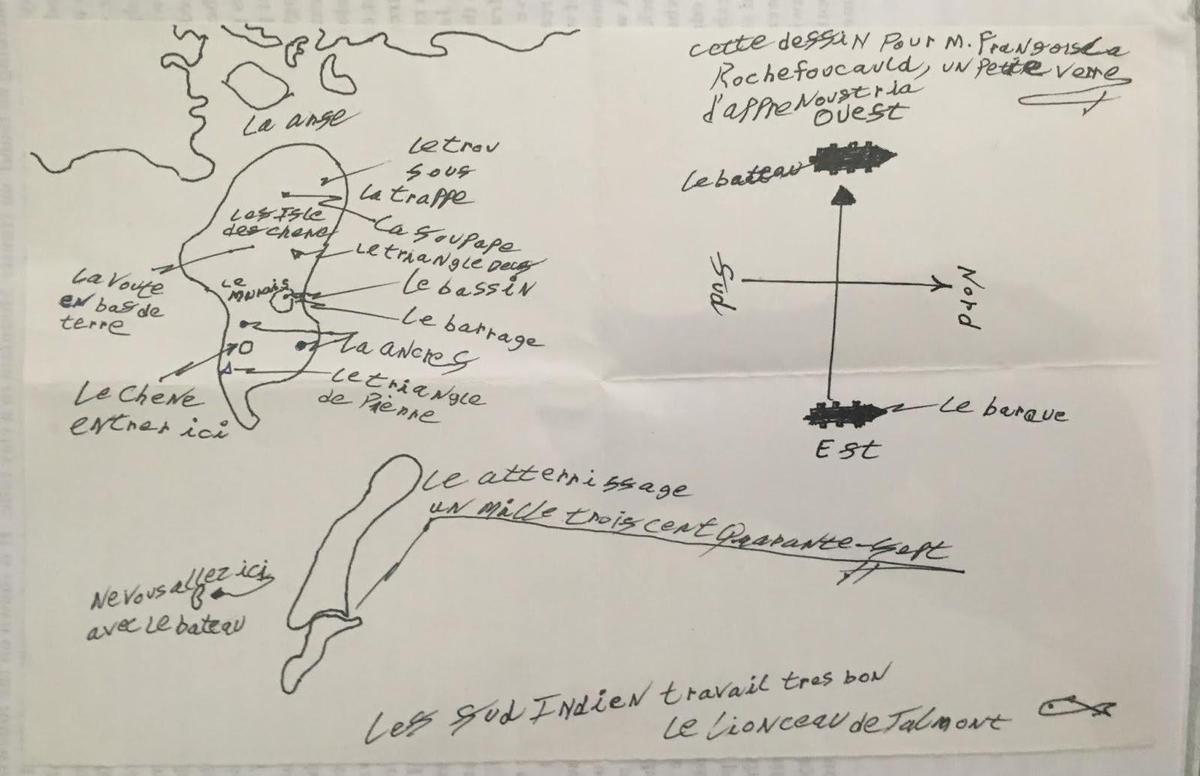 cette dessin pour M. Françoisla
Rochefoucauld, un petite verre
d'appre Noustria
OUEST
Le batteau
Sud
Nord
Le barque
Est
La anse
Le trou
sous
La trappe
La soupape
Les Isle
des chene
Le triangle
Le bassin
Le
Marais
Le barrage
La Voute
en bas de
terre
La ancres
Le triangle
de Pierre
Le Chene
entrer ici
Le atterrissage
un mille trois cent Quarante-Sept
Ne vous allez ici
avec Le bateau
Les Sud Indien travail tres bon
Le Lionceau de Talmont